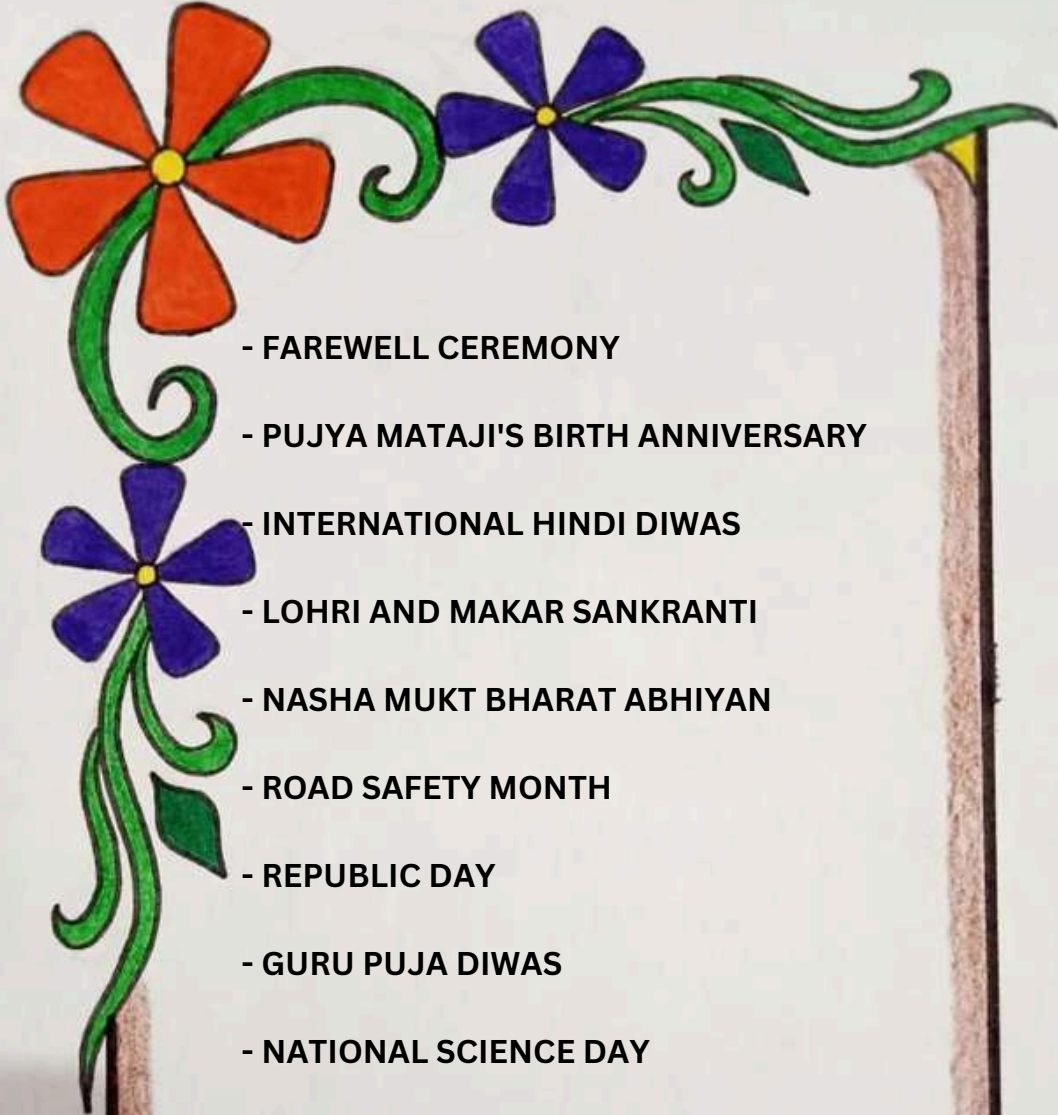 - FAREWELL CEREMONY
- PUJYA MATAJI'S BIRTH ANNIVERSARY
- INTERNATIONAL HINDI DIWAS
- LOHRI AND MAKAR SANKRANTI
- NASHA MUKT BHARAT ABHIYAN
- ROAD SAFETY MONTH
- REPUBLIC DAY
- GURU PUJA DIWAS
- NATIONAL SCIENCE DAY